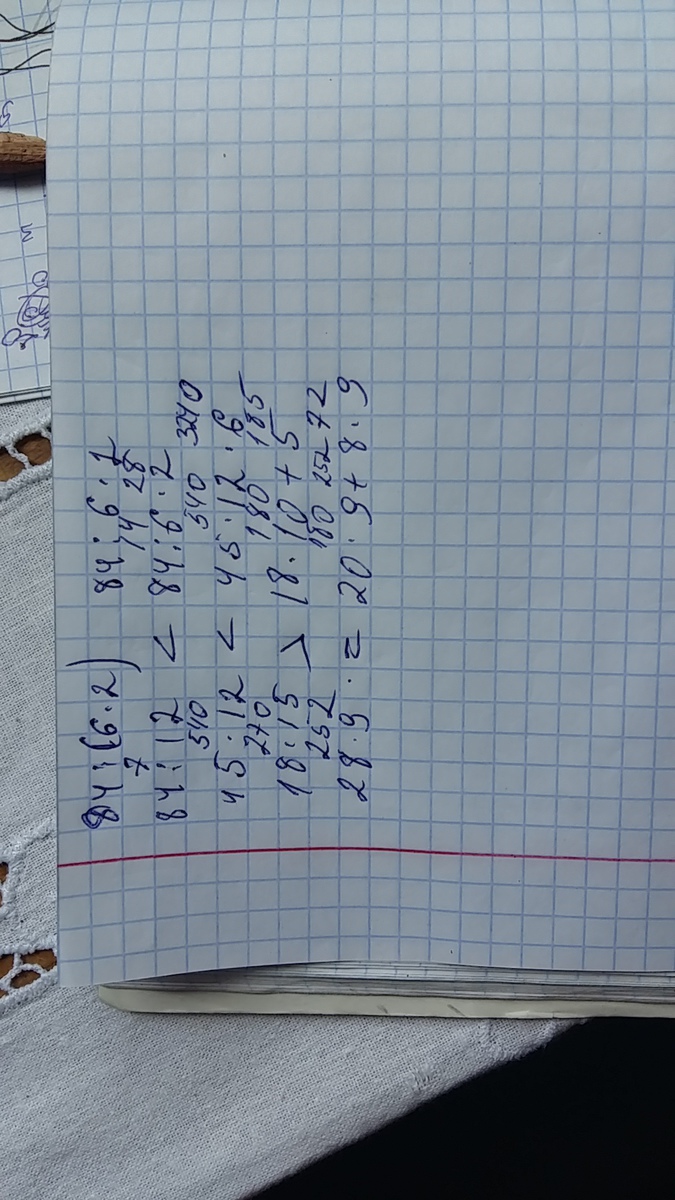 84:(6·2) 84:6·2
7 14 28
84:12 < 84:6·2
540 540 3240
45·12 < 45·12·6
270 180 185
18·15 > 18·10+5
252 180 252 72
28·9 = 20·9+8·9